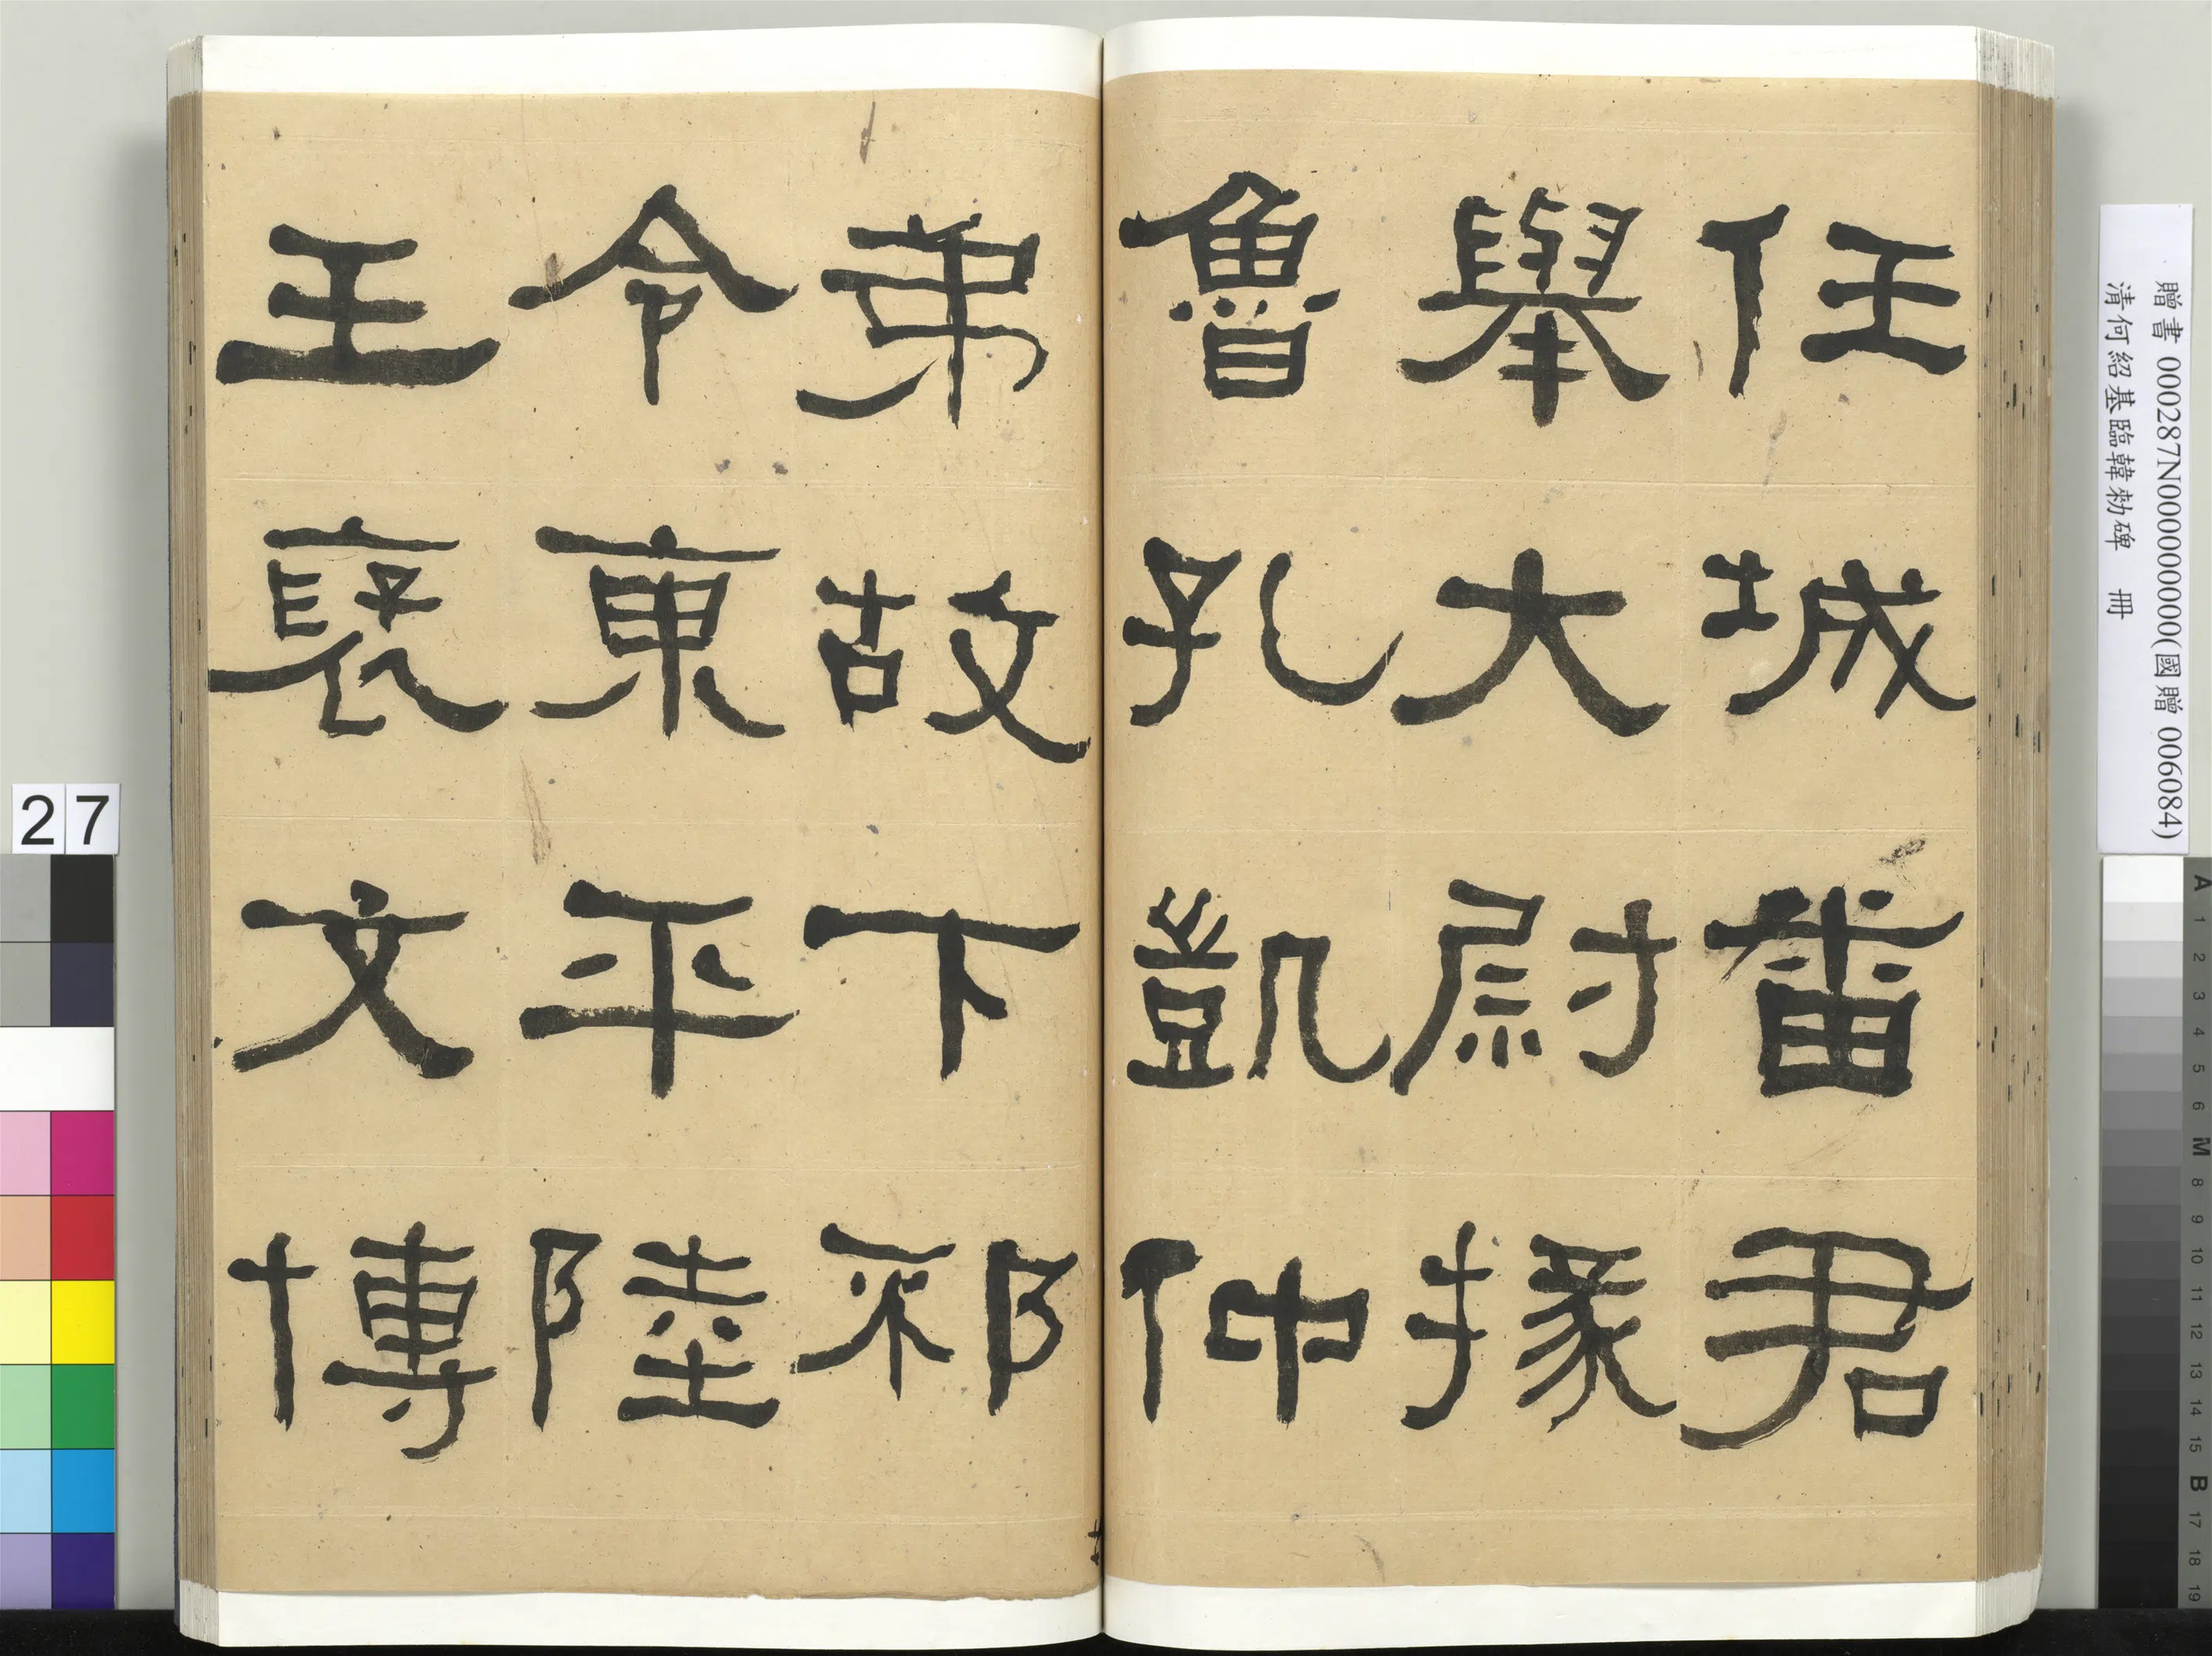 任城番君
舉大尉掾
魯孔凱仲
弟故下邳
令東平陸
王褒文博
贈書 000287N000000000(國贈 006084)
清何紹基臨韓勑碑 冊
27
A 1 2 3 4 5 6 M 8 9 10 11 12 13 14 15 B 17 18 19